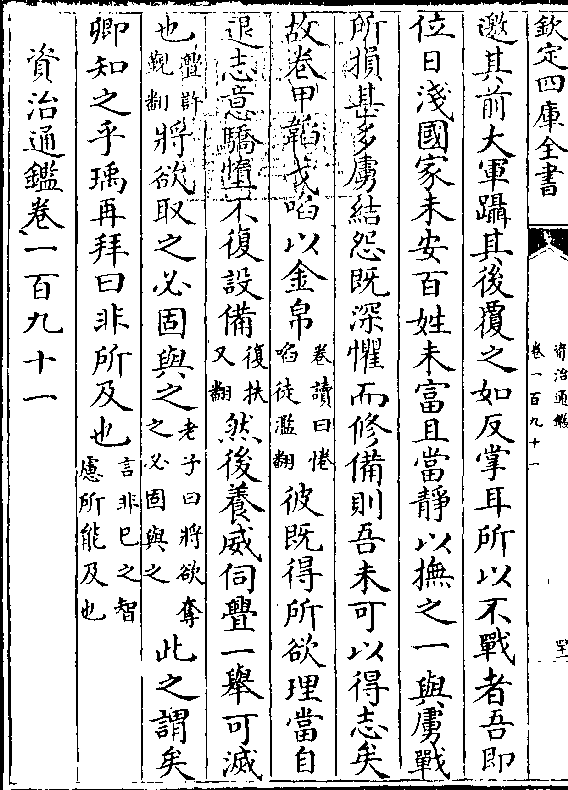 欽定四庫全書
資治通鑑
卷一百九十一
四十一
邀其前大軍躡其後覆之如反掌耳所以不戰者吾即
位日淺國家未安百姓未富且當靜以撫之一與虜戰
所損甚多虜結怨既深懼而修備則吾未可以得志矣
故卷甲韜戈啗以金帛卷讀曰惓啗徒濫翻彼既得所欲理當自
退志意驕墮不復設備復扶又翻然後養威伺舋一舉可滅
也舋許覲翻將欲取之必固與之老子曰將欲奪之必固與之此之謂矣
卿知之乎瑀再拜曰非所及也言非己之智慮所能及也
資治通鑑卷一百九十一